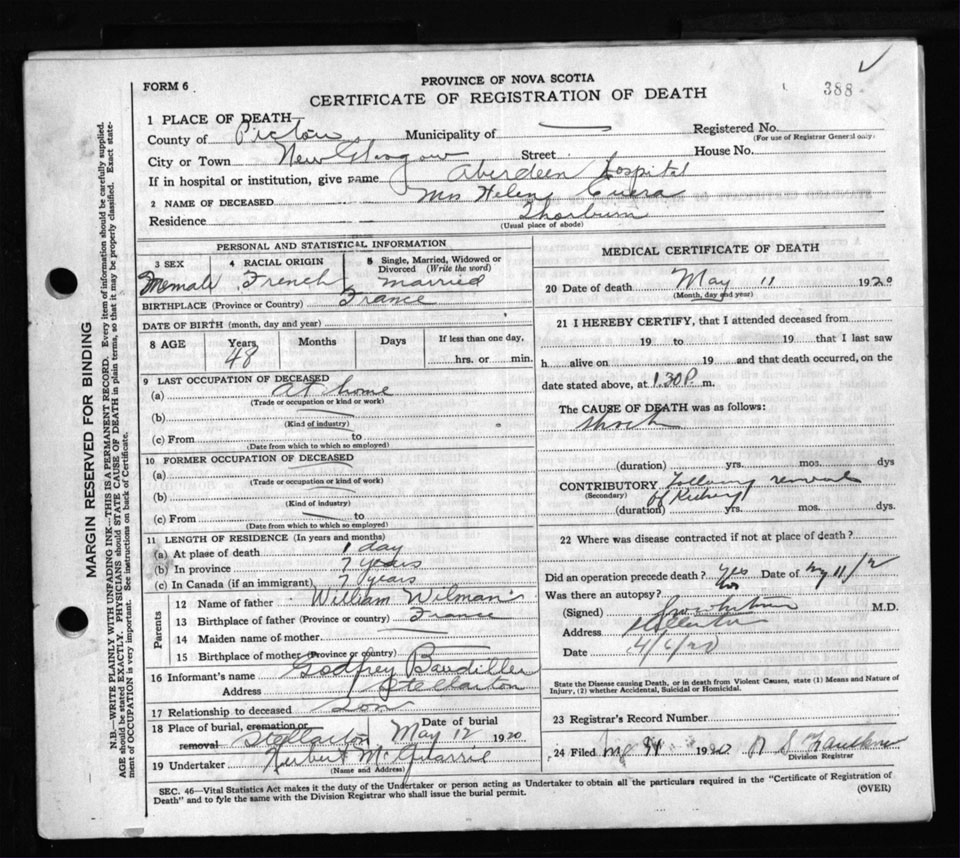 388
FORM 6
PROVINCE OF NOVA SCOTIA
CERTIFICATE OF REGISTRATION OF DEATH
1 PLACE OF DEATH
County of Pictou Municipality of Registered No.
(For use of Registrar General only)
City or Town New Glasgow Street House No.
If in hospital or institution, give name Aberdeen Hospital
2 NAME OF DECEASED Mrs Helen
Residence Thorburn
(Usual place of abode)
PERSONAL AND STATISTICAL INFORMATION
3 SEX 4 RACIAL ORIGIN 5 Single, Married, Widowed or Divorced (Write the word)
Female French married
BIRTHPLACE (Province or Country) France
DATE OF BIRTH (month, day and year)
8 AGE Years Months Days If less than one day,
48 hrs. or min.
9 LAST OCCUPATION OF DECEASED
(a) At home
(Trade or occupation or kind or work)
(b)
(Kind of industry)
(c) From to
(Date from which to which so employed)
10 FORMER OCCUPATION OF DECEASED
(a)
(Trade or occupation or kind of work)
(b)
(Kind of industry)
(c) From to
(Date from which to which so employed)
11 LENGTH OF RESIDENCE (In years and months)
(a) At place of death 1 day
(b) In province 7 years
(c) In Canada (if an immigrant) 7 years
Parents
12 Name of father William
13 Birthplace of father (Province or country) France
14 Maiden name of mother
15 Birthplace of mother (Province or country)
16 Informant's name Godfrey
Address Stellarton
17 Relationship to deceased Son
18 Place of burial, cremation or removal Stellarton Date of burial May 12 1920
19 Undertaker Herbert
(Name and Address)
MEDICAL CERTIFICATE OF DEATH
20 Date of death May 11 1920
(Month, day and year)
21 I HEREBY CERTIFY, that I attended deceased from
19 to 19 that I last saw
h alive on 19 and that death occurred, on the
date stated above, at 1.30 P. m.
The CAUSE OF DEATH was as follows:
Shock
(duration) yrs. mos. dys
CONTRIBUTORY following removal
(Secondary) of Kidney
(duration) yrs. mos. dys.
22 Where was disease contracted if not at place of death?
Did an operation precede death? yes Date of
Was there an autopsy? no
(Signed) M.D.
Address Stellarton
Date
State the Disease causing Death, or in death from Violent Causes, state (1) Means and Nature of
Injury, (2) whether Accidental, Suicidal or Homicidal.
23 Registrar's Record Number
24 Filed 1920
Division Registrar
SEC. 46—Vital Statistics Act makes it the duty of the Undertaker or person acting as Undertaker to obtain all the particulars required in the "Certificate of Registration of
Death" and to fyle the same with the Division Registrar who shall issue the burial permit.
(OVER)
MARGIN RESERVED FOR BINDING
N.B.—WRITE PLAINLY WITH UNFADING INK—THIS IS A PERMANENT RECORD. Every item of information should be carefully supplied.
AGE should be stated EXACTLY. PHYSICIANS should STATE CAUSE OF DEATH in plain terms, so that it may be properly classified. Exact statement
of OCCUPATION is very important. See instructions on back of Certificate.